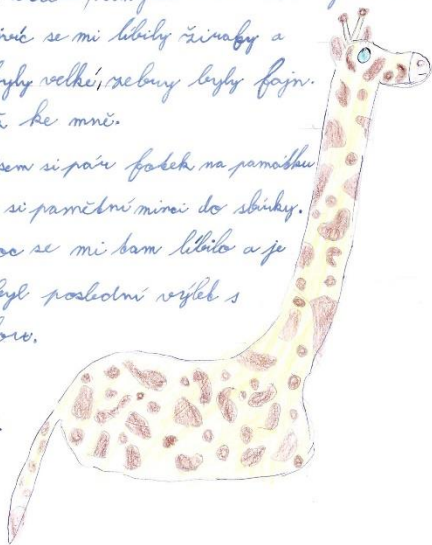 se mi líbily žirafy a
velké, zebry byly fajn.
ke mně.
jsem si pár fotek na památku
si pamětní minci do sbírky.
se mi tam líbilo a je
poslední výlet s